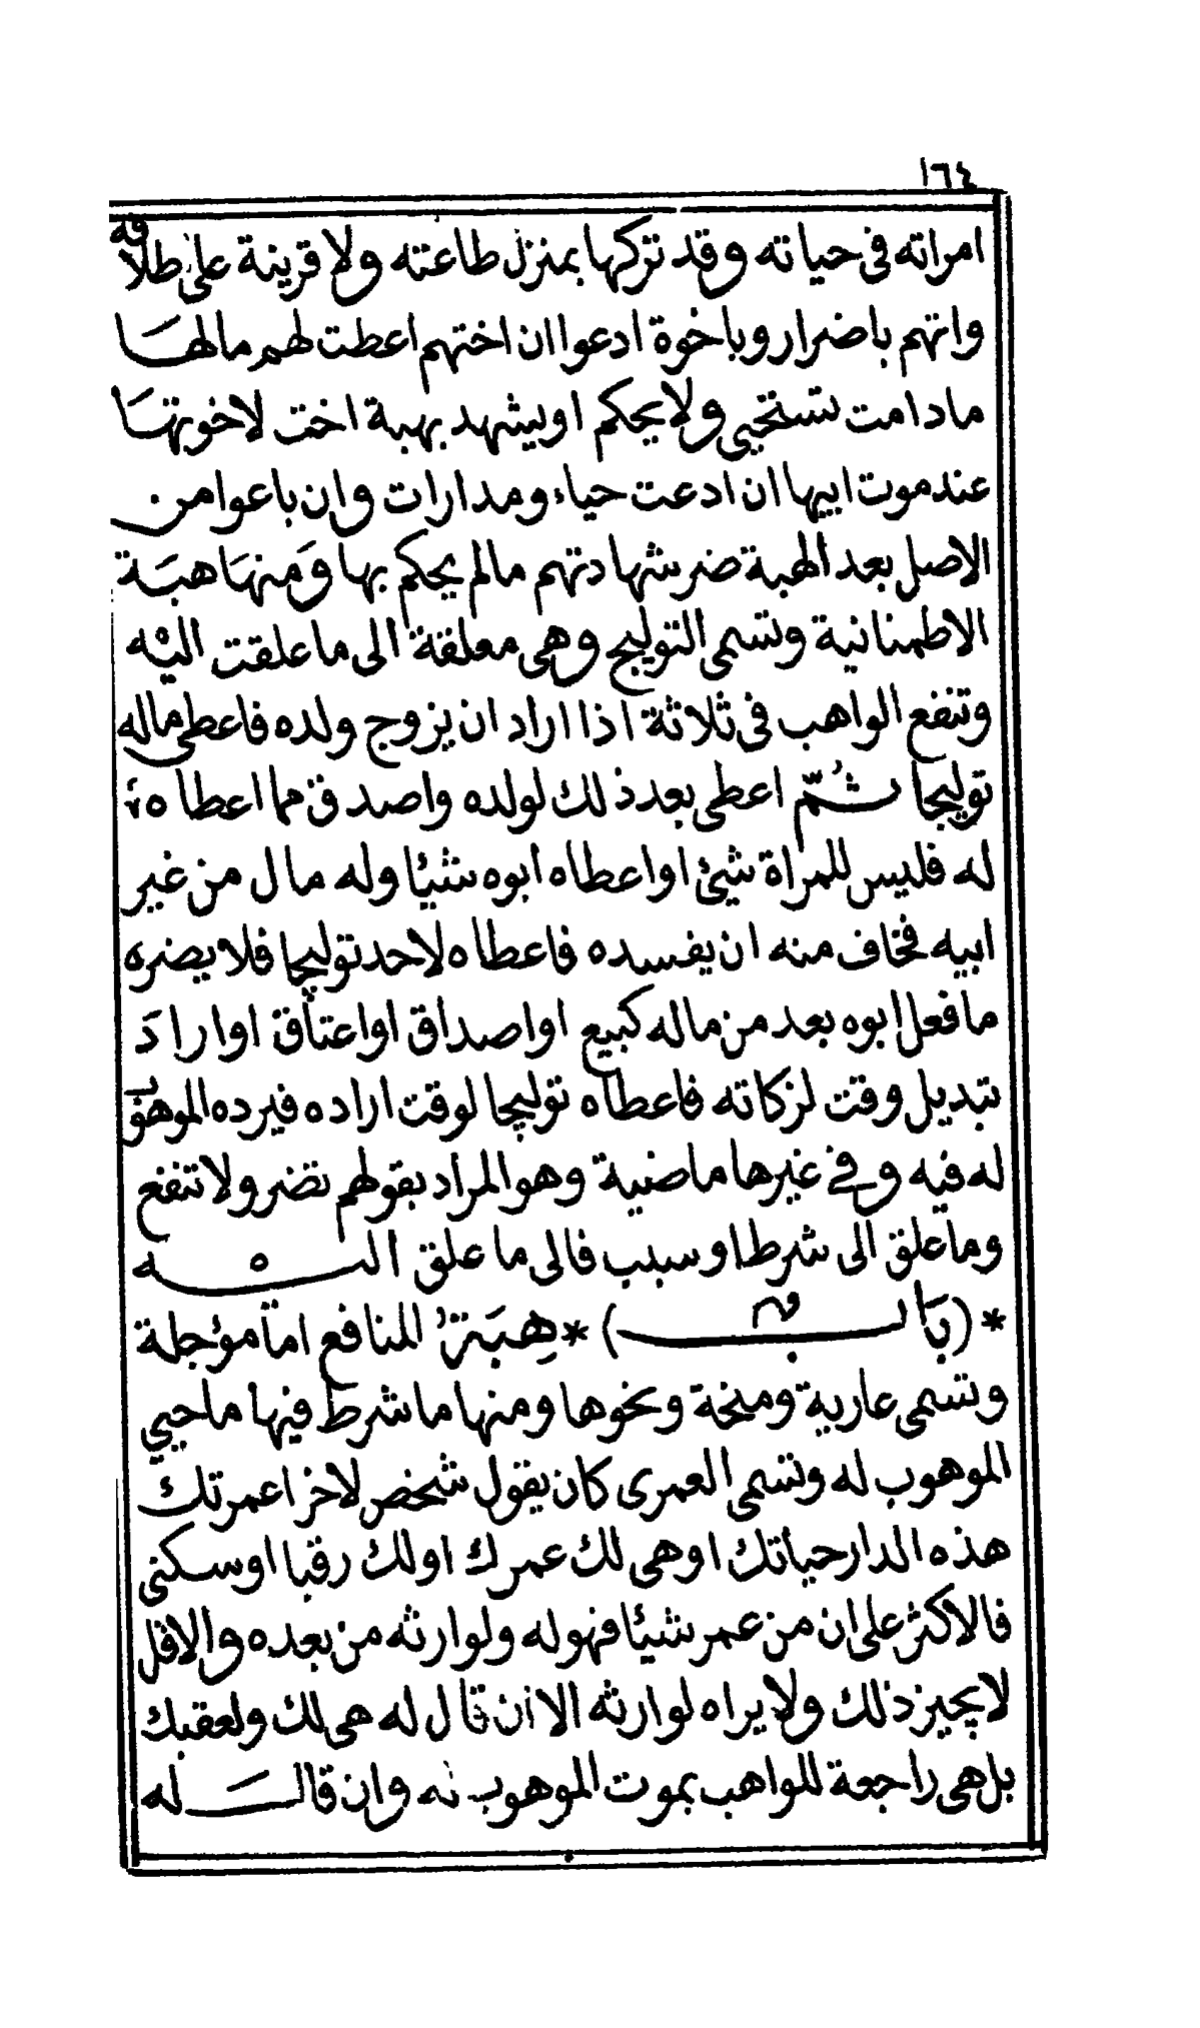 ١٦٤
امراته فى حياته وقد تركها بمنزل طاعته ولا قرينة على طلاقه
واتهم باضرار وباخوة ادعوا ان اختهم اعطت لهم مالها
مادامت تستحيي ولا يحكم او يشهد بهبة اخت لاخوتها
عند موت ابيها ان ادعت حياء ومدارات وان باعوا من
الاصل بعد الهبة ضر شهادتهم مالم يحكم بها وَمنهَا هبَة
الاطمنانية وتسمى التوليج وهى معلقة الى ما علقت اليه
وتنفع الواهب فى ثلاثة اذا اراد ان يزوج ولده فاعطى ماله
توليجا ثُمّ اعطى بعد ذلك لولده واصدق مما اعطاه
له فليس للمراة شيئ او اعطاه ابوه شيئا وله مال من غير
ابيه فخاف منه ان يفسده فاعطاه لاحد توليجا فلا يضره
ما فعل ابوه بعد من ماله كبيع او اصداق او اعتاق او ارادَ
تبديل وقت لزكاته فاعطاه توليجا لوقت اراده فيرده الموهوب
له فيه وفى غيرها ماضية وهو المراد بقولهم تضر ولا تنفع
وما علق الى شرط او سبب فالى ما علق اليه
*(بَاب)* هِبَةُ المنافع اما مؤجلة
وتسمى عارية ومنحة ونحوها ومنها ما شرط فيها ما حيي
الموهوب له وتسمى العمرى كان يقول شخص لاخر اعمرتك
هذه الدار حياتك او هى لك عمرك او لك رقبا او سكنى
فالاكثر على ان من عمر شيئا فهو له ولوارثه من بعده والاقل
لا يجيز ذلك ولا يراه لوارثه الا ان قال له هى لك ولعقبك
بل هى راجعة للواهب بموت الموهوب له وان قال له